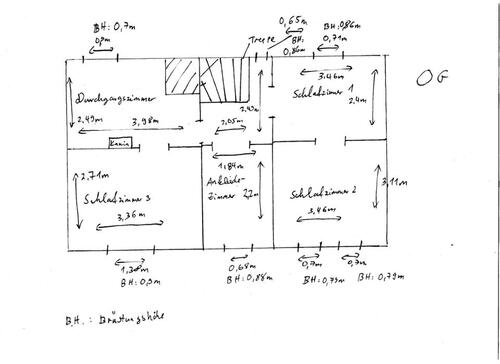 BH: 0,7m
0,65m
BH: 0,86m
Treppe
BH: 0,86m
0,71m
OG
Durchgangszimmer
3,46m
Schlafzimmer 1
2,4m
2,49m
3,98m
2,05m
Kamin
1,84m
2,71m
Ankleide-
zimmer
3,11m
Schlafzimmer 3
Schlafzimmer 2
3,36m
3,46m
0,68m
0,7m
0,7m
BH: 0,9m
BH: 0,88m
BH: 0,79m
BH: 0,79m
B.H.: Brüstungshöhe